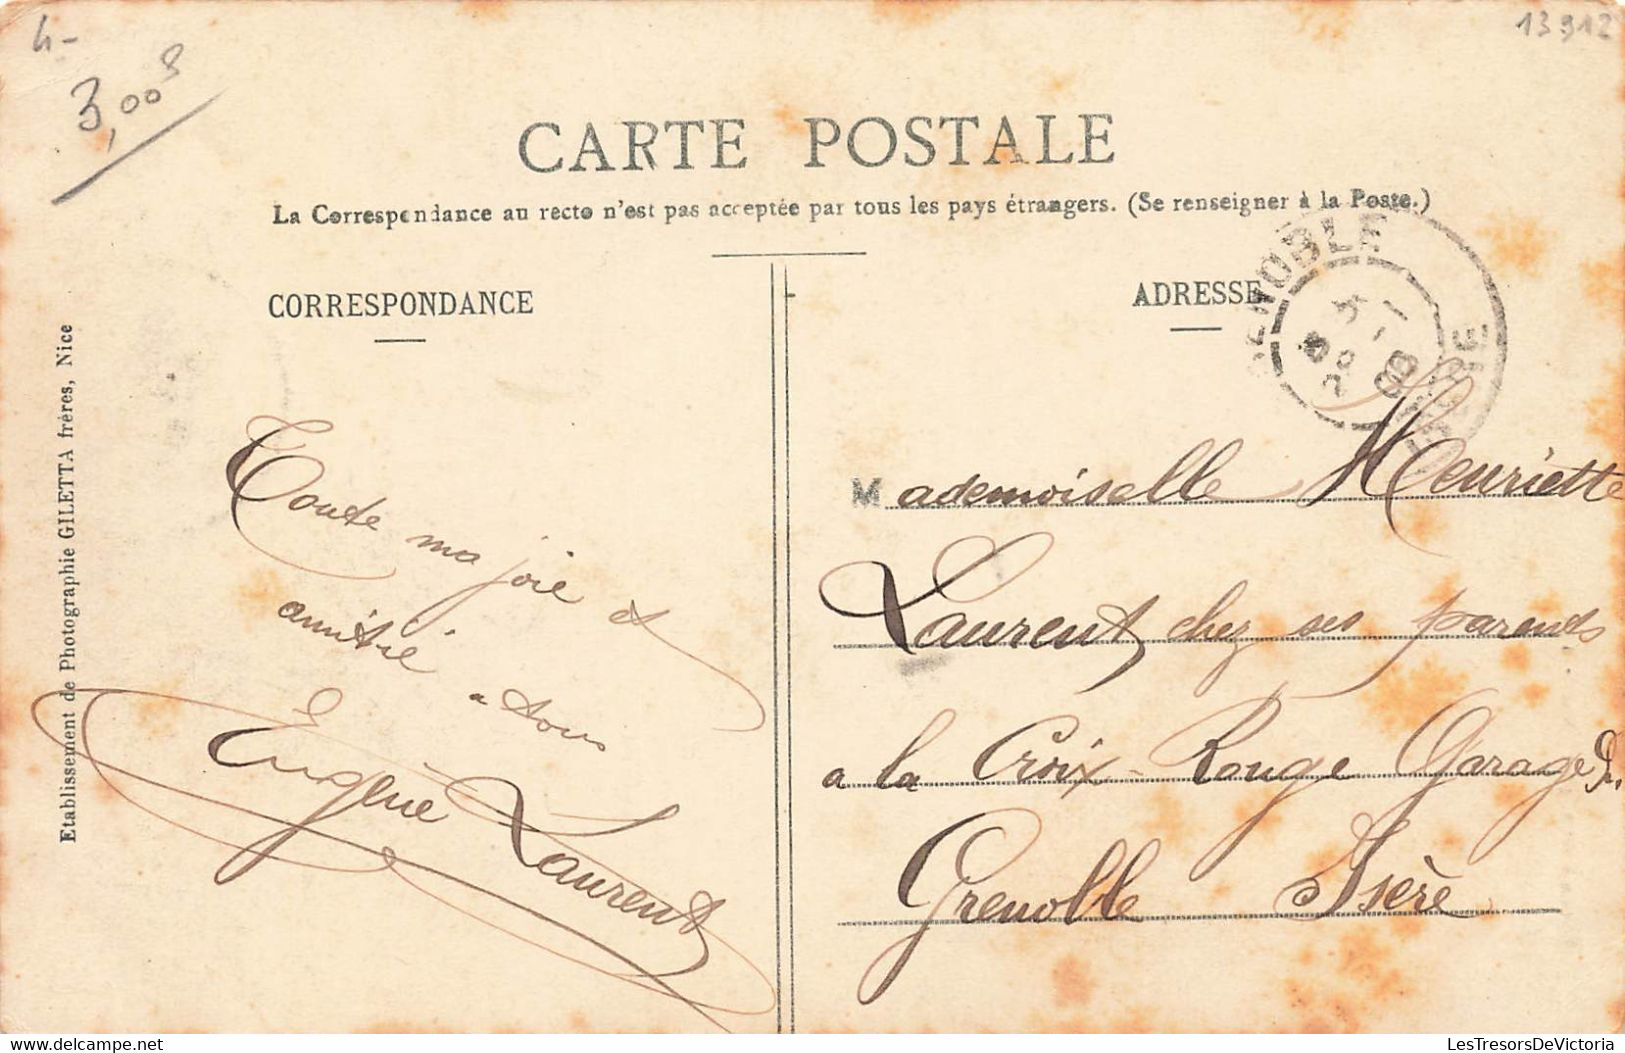 4-
3,00
13912
CARTE POSTALE
La Correspondance au recto n'est pas acceptée par tous les pays étrangers. (Se renseigner à la Poste.)
CORRESPONDANCE
ADRESSE
GRENOBLE
ISERE
Etablissement de Photographie GILETTA frères, Nice
Toute ma joie et
amitié a tous
Eugène Laurent
Mademoiselle Henriette
Laurent chez ses parents
a la Croix Rouge Garage
Grenoble Isère
delcampe.net
LesTresorsDeVictoria